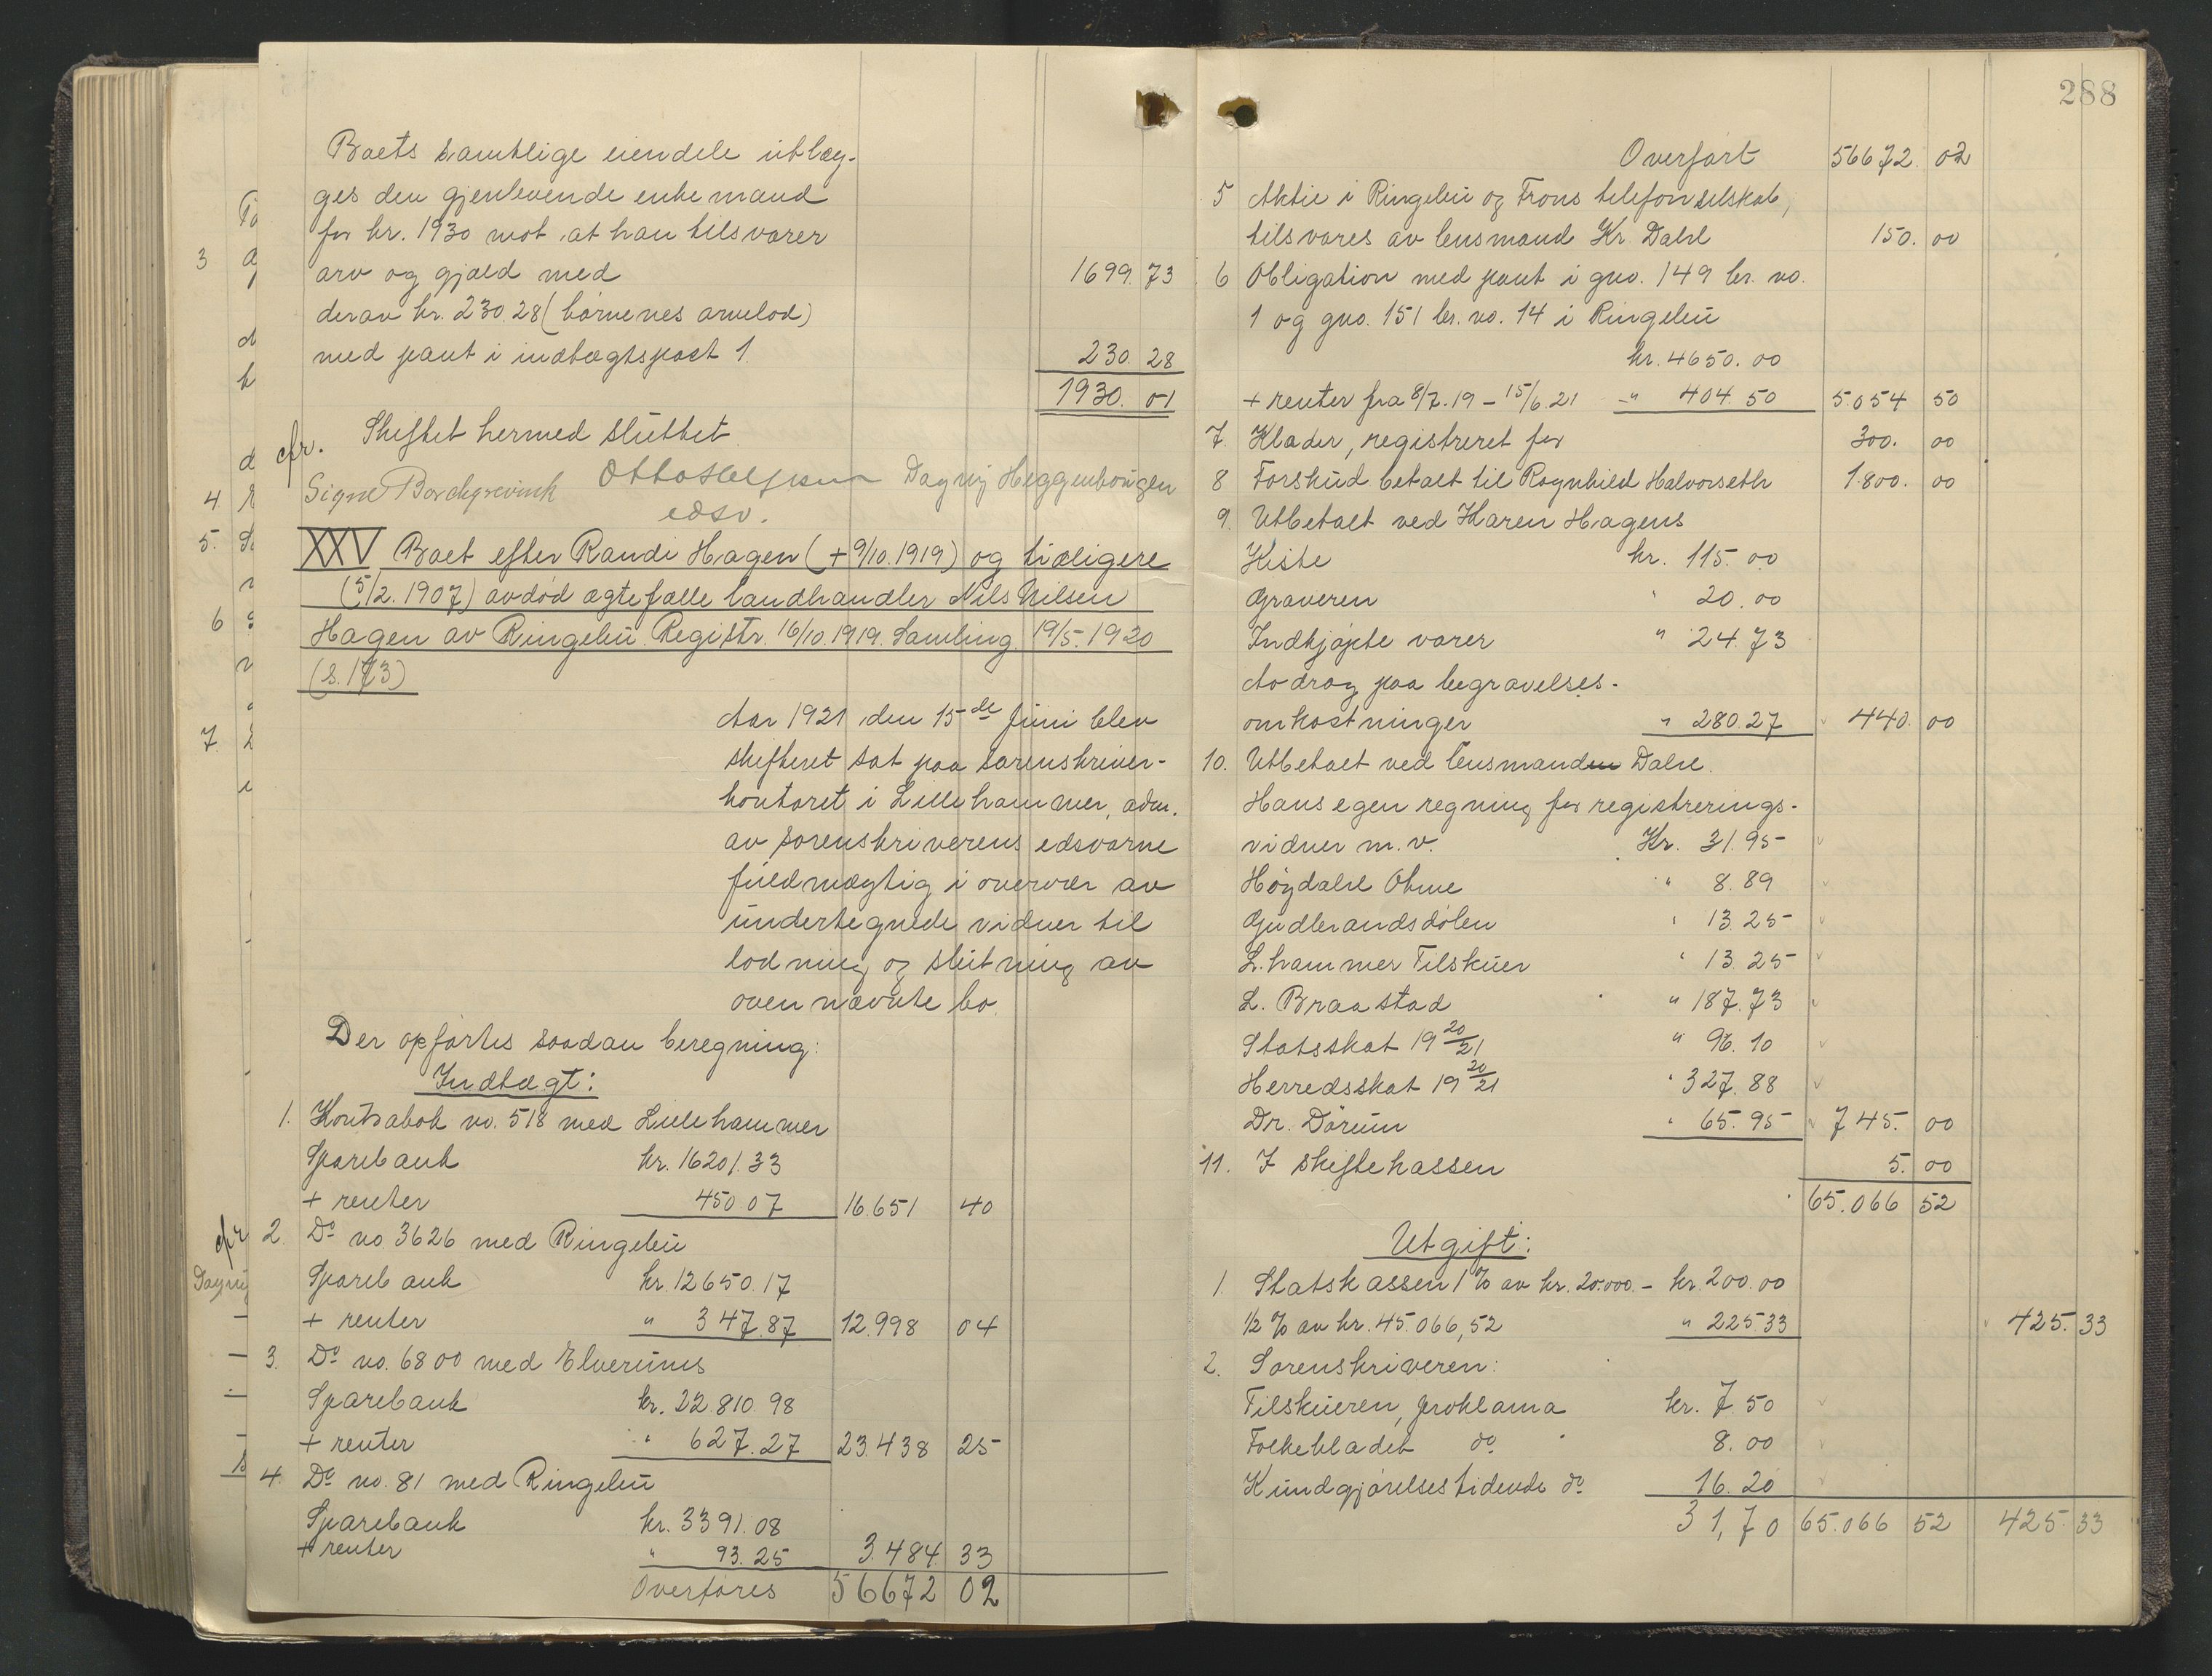 Boets samtlige eiendele utlæg-
ges den gjenlevende enkemand
for kr. 1930 mot at han tilsvarer
arv og gjæld med 1699. 73
derav kr. 230.28 (børnenes arvelod)
med pant i indtægtspost 1. 230. 28
1930. 01
cfr. Skiftet hermed sluttet.
Signe Borchgrevink Dagny Heggenhougen
edsv.
XXV Boet efter Randi Hagen (+ 9/10.1919) og tidligere
(5/2. 1907) avdød ægtefælle landhandler Nils Nilsen
Hagen av Ringebu. Registr. 16/10.1919. Samling 19/5.1920
(s. 173)
Aar 1921 den 15de juni blev
skifteret sat paa sorenskriver-
kontoret i Lillehammer, adm.
av sorenskriverens edsvorne
fuldmægtig i overvær av
undertegnede vidner til
lodning og slutning av
ovennævnte bo.
Der opførtes saadan beregning:
Indtægt:
1. Kontrabok no. 518 med Lillehammer
Sparebank kr. 16201.33
+ renter 450 07 16.651 40
cfr 2. Do no. 3626 med Ringebu
Sparebank kr. 12650.17
+ renter " 347.87 12.998 04
3. Do no. 6800 med Elverums
Sparebank kr. 22.810.98
+ renter " 627.27 23.438 25
4. Do no. 81 med Ringebu
Sparebank kr. 3391.08
+ renter " 93.25 3.484 33
Overføres 56672 02
288
Overført 56672. 02
5 Aktie i Ringebu og Frons telefonselskab,
tilsvares av lensmand Kr. Dahl 150. 00
6 Obligation med pant i gno. 149 br. no.
1 og gno. 151 br. no. 14 i Ringebu
kr. 4650.00
+ renter fra 8/7.19 - 15/6.21 " 404.50 5.054 50
7. Klæder, registreret for 300. 00
8 Forskud betalt til Ragnhild Halvorseth 1.800. 00
9. Utbetalt ved Karen Hagens
Kiste kr. 115.00
Graveren " 20.00
Indkjøpte varer " 24.73
Avdrag paa begravelses-
omkostninger " 280.27 440. 00
10. Utbetalt ved lensmanden Dahl.
Hans egen regning for registrerings-
vidner m. v. Kr. 31.95
Høydahl Ohme " 8.89
Gudbrandsdølen " 13.25
L.hammer Tilskuer " 13.25
L. Braastad " 187.73
Statsskat 19 20/21 " 96.10
Herredsskat 19 20/21 " 327.88
Dr. Dørum " 65.95 745. 00
11. I skiftekassen 5. 00
65.066 52
Utgift:
1. Statskassen 1% av kr. 20.000.- kr. 200.00
1/2 % av kr. 45.066,52 " 225.33 425. 33
2. Sorenskriveren:
Tilskueren, proklama kr. 7.50
Folkebladet do 8.00
Kundgjørelsestidende do 16.20
31,70 65.066 52 425. 33